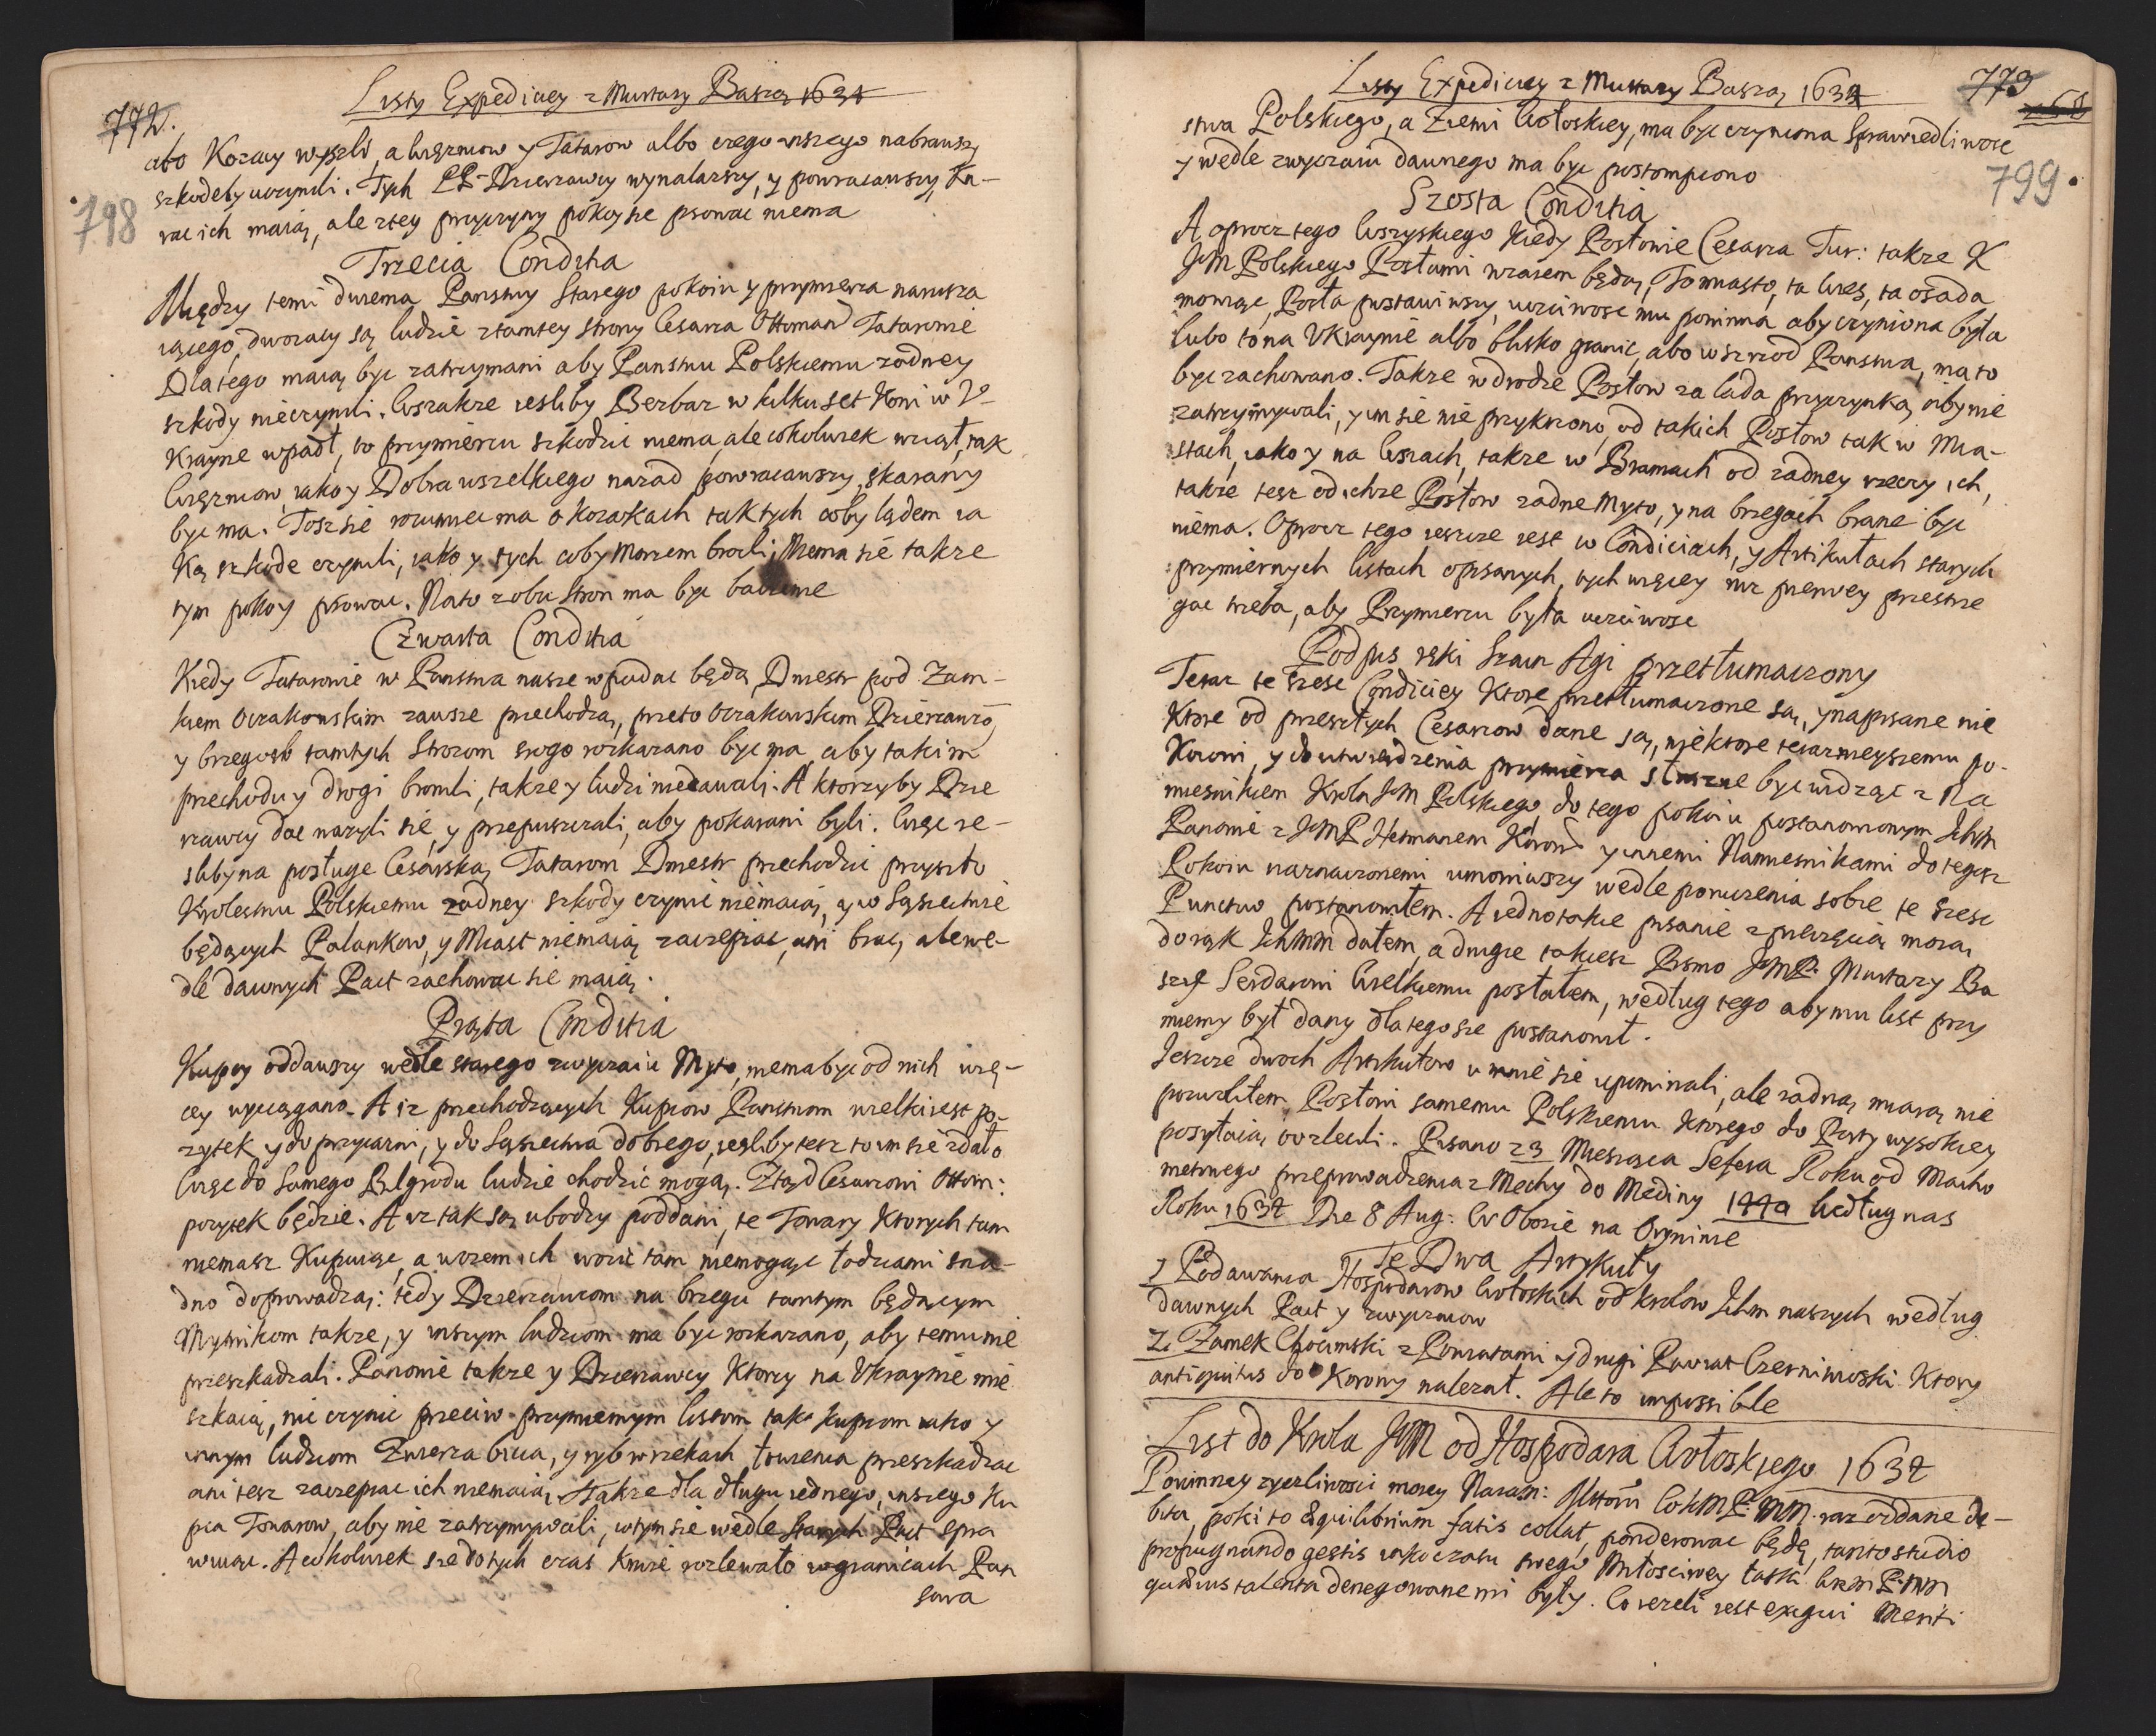 772.
Listy Expediciey z Murtazy Baszą 1634
798
abo Kozacy wyszli, a więzniow y Tatarow albo czego inszego nabrawszy
szkodeby uczynili. Tych PP. Dzierzawcy wynalazszy, y powracawszy, Ka-
rac ich maią, ale ztey przyczyny pokoy sie psowac niema
Trzecia Conditia
Między temi dwiema Panstwy starego pokoiu y przymierza narusza
iącego, dworacy są ludzie ztamtey strony Cesarza Ottoman Tatarowie
Dlatego maią byc zatrzymani aby Panstwu Polskiemu zadney
szkody nieczynili. Wszakze iesliby Berbar w kilku set Koni w V-
krayne wpadł, to przymierzu szkodzic niema, ale cokolwiek wziął, tak
Więzniow, iako y Dobra wszelkiego nazad powracawszy, skarany
byc ma. Tosz sie rozumiec ma o kozakach tak tych coby lądem ia
Ką szkode czynili, iako y tych coby Morzem broili, Niema sie takze
tym pokoy psowac. Na to z obu stron ma byc baczenie
Czwarta Conditia
Kiedy Tatarowie w Panstwa nasze wpadac będą, Dniestr pod Zam-
kiem Oczakowskim zawsze przechodzą, przeto Oczakowskim Dzierzawcō,
y brzegow tamtych Strozom srogo rozkazano byc ma, aby takim
przechodu y drogi bronili, takze y ludzi niedawali. A ktorzyby Drze
rzawcy dac nazyli się, y przepuszczali, aby pokarani byli. Więc ie-
sliby na posługe Cesarską, Tatarom Dniestr przechodzic przyszło
Krolestwu Polskiemu zadney szkody czynic niemaią, y w Sąsiectwie
będących Palankow, y Miast niemaią zaczepiac, ani brac, ale we-
dle dawnych Pact zachowac sie maią.
Piąta Conditia
Kupcy oddawszy wedle starego zwyczaiu Myto, niema byc od nich wię-
cey wyciągano. A iz przechodzących Kupcow Panstwom wielki iest po-
zytek, y do przyiazni, y do Sąsiectwa dobrego, iesliby tesz to im sie zdało
Więc do samego Belgrodu ludzie chodzic mogą. Ztąd Cesarzowi Ottom:
pozytek będzie. A iz tak są ubodzy poddani, te Towary Ktorych tam
niemasz Kupuiąc, a wozem ich wozic tam niemogąc łodziami sna-
dno doprowadzą: tedy Dzierzawcom na brzegu tamtym będącym
Mytnikom takze, y inszym ludziom ma byc rozkazano, aby temu nie
przeszkadzali. Panowie takze y Dzierzawcy Ktorzy na Vkraynie mie
szkaią, nic czynic przeciw przymiernym listom tak kupcom iako y
innym ludziom Zwierza bicia, y ryb w rzekach łowienia przeszkadzac
ani tesz zaczepiac ich niemaią, takze dla długu iednego, inszego Ku
pca Towarow, aby nie zatrzymywali, w tym sie wedle starych Pact spra
wuiąc. A cokolwiek sie dotych czas Krwie rozlewało w granicach Pan
stwa
Listy Expediciey z Murtazy Baszą, 1634
773
799
stwa Polskiego, a Ziemi Wołoskiey, ma byc czyniona Sprawiedliwosc
y wedle zwyczaiu dawnego ma byc postompiono
Szosta Conditia
A oprocz tego Wszyskiego Kiedy Posłowie Cesarza Tur: takze K
JeM Polskiego Posłami wrazem będą, To miasto, ta wies, ta osada
mowiąc, Posła postawiwszy, ucziwosc mu powinna aby czyniona była
lubo to na Vkraynie albo blisko granic, abo w szrzod Panstwa, ma to
byc zachowano. Takze w drodze Posłow za lada przyczynką, aby nie
zatrzymywali, y im sie nie przykrzono, od takich Posłow tak w Mia-
stach, iako y na Wsiach, takze w Bramach od zadney rzeczy ich,
takze tesz od ichze Posłow zadne Myto, y na brzegach brane byc
niema. Oprocz tego ieszcze iest w Condiciach, y Artikułach starych
przymiernych listach opisanych, tych więcey niz pierwey przestrze
gac trzeba, aby Przymierzu była ucziwosc
Podpis ręki Szain Agi przetłumaczony
Teraz te szesc Condiciey Ktore przetłumaczone są, y napisane nie
Ktore od przeszłych Cesarzow dane są, niektore terazneyszemu po-
Koiowi, y do utwierdzenia przymierza słuszne byc widząc z Na
miesnikiem Krola JeM Polskiego, do tego pokoiu postanowionym Ichm
Panowie z JeMP Hetmanem Koron y innemi Namiesnikami do tegosz
Pokoiu naznaczonemi umowiwszy wedle poruczenia sobie te szesc
Punctow postanowiłem. A iedno takie pisanie z pieczęcią moią
do rąk Ichmm dałem, a drugie takiesz Pismo JeMP. Murtazy Ba
szy Serdarowi Wielkiemu posłałem, według tego aby mu list przy
mierny był dany dlatego sie postanowił.
Jeszcze dwoch Artikułow u mnie sie upominali, ale zadną miarą nie
pozwoliłem Posłowi samemu Polskiemu Ktorego do Porty wysokiey
posyłaią zlecili. Pisano 23 Miesiąca Sefera Roku od Macho
metowego przeprowadzenia z Mechy do Mediny 1440 Według nas
Roku 1634 Die 8 Aug: W Obozie na Oryninie
Te Dwa Artykuły
1 Podawania Hospodarow Wołoskich od Krolow Ichm naszych według
dawnych Pact y zwyczaiow
2. Zamek Chocimski z Powiatami y drugi Powiat Czerniniowski Ktory
antiquitus do Korony nalezał. Ale to impossibile
List do Krola JeM od Hospodara Wołoskiego 1634
Powinney zyczliwosci moiey
bita, poki to æquilibrium fatis collat, ponderowac będę, tanto studio
propugnando gestis iako czasu swego Miłosciwey łaski WKM P. MM
talenta denegowane mi były. Co iezeli iest exigui Meriti